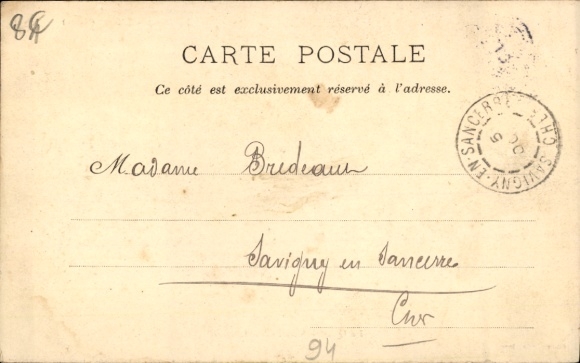 CARTE POSTALE
Ce côté est exclusivement réservé à l'adresse.
SAVIGNY-EN-SANCERRE
CHER
Madame Bredeaux
Savigny en Sancerre
Cher
94